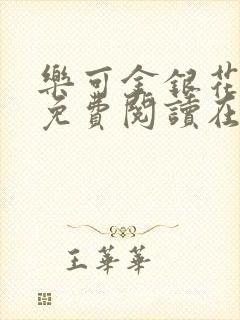 樂可金銀花
免費閱讀在
王華華